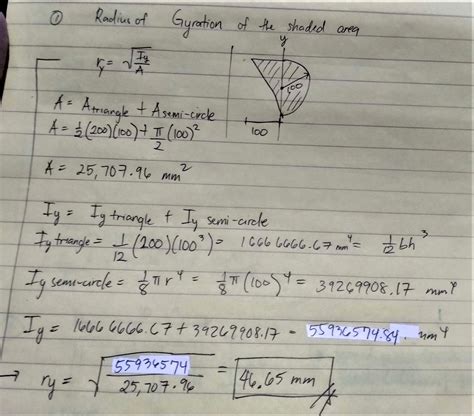 ① Radius of Gyration of the shaded area
y
r_y = √(I_y / A)
100
100
A = A_triangle + A_semi-circle
A = 1/2 (200)(100) + π/2 (100)²
A = 25,707.96 mm²
I_y = I_y triangle + I_y semi-circle
I_y triangle = 1/12 (200)(100³) = 16666666.67 mm⁴ = 1/12 bh³
I_y semi-circle = 1/8 π r⁴ = 1/8 π (100)⁴ = 39269908.17 mm⁴
I_y = 16666666.67 + 39269908.17 = 55936574.84 mm⁴
→ r_y = √(55936574 / 25,707.96) = 46.65 mm